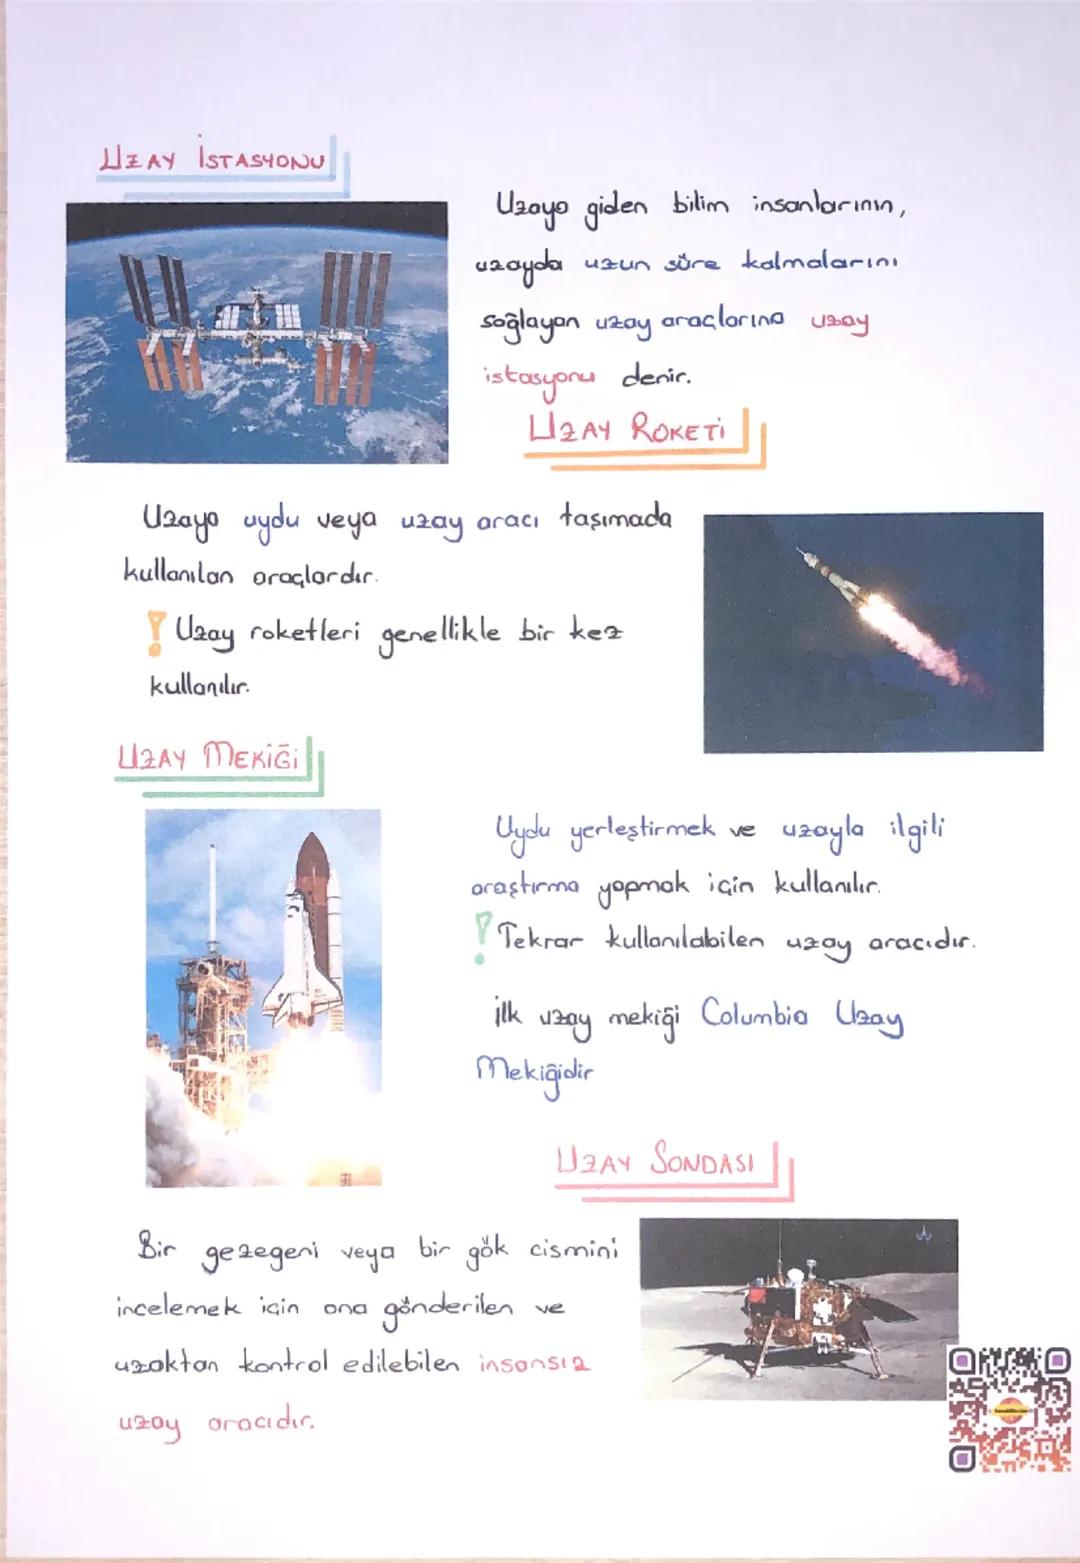 UZAY İSTASYONU
Uzaya giden bilim insanlarının,
uzayda uzun süre kalmalarını
sağlayan uzay araçlarına uzay
istasyonu denir.
UZAY ROKETİ
Uzaya uydu veya uzay aracı taşımada
kullanılan araçlardır.
! Uzay roketleri genellikle bir kez
kullanılır.
UZAY MEKİĞİ
Uydu yerleştirmek ve uzayla ilgili
araştırma yapmak için kullanılır.
! Tekrar kullanılabilen uzay aracıdır.
İlk uzay mekiği Columbia Uzay
Mekiğidir
UZAY SONDASI
Bir gezegeni veya bir gök cismini
incelemek için ona gönderilen ve
uzaktan kontrol edilebilen insansız
uzay aracıdır.